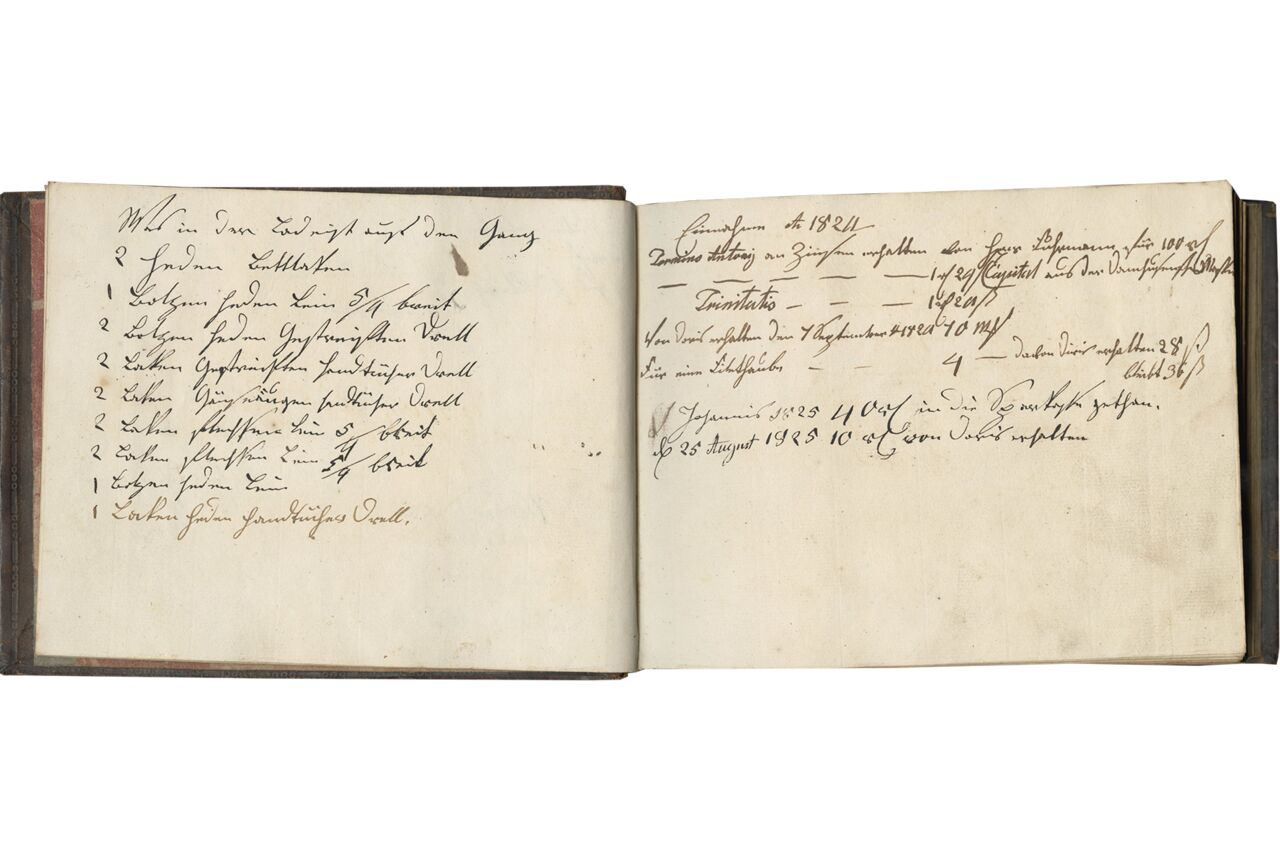 Was in der Lade ist auf den Gang
2 heden Bettlaken
1 Boltzen heden Lein 5/4 breit
2 Boltzen heden Gestreiften Drell
2 Laken Gestreiften handtücher Drell
2 Laken Gänseaugen handtücher Drell
2 Laken flechsen Lein 5/4 breit
2 Laken flechsen Lein 5/4 breit
1 Boltzen heden Lein
1 Laken heden handtücher Drell.
Einnahme Ao 1824
Termino Antony an Zinsen erhalten von Herr Fuhrmann für 100
— — — — — 1 29 ß Capital aus der
Trinitatis — — — 1 20 ß
Von Doris erhalten den 7 September 10
Für eine — — 4 — davon Doris erhalten 28 ß
bleibt 36 ß
Johannis 1825 40 in die Sparkasse gethan.
d 25 August 1825 10 von Doris erhalten